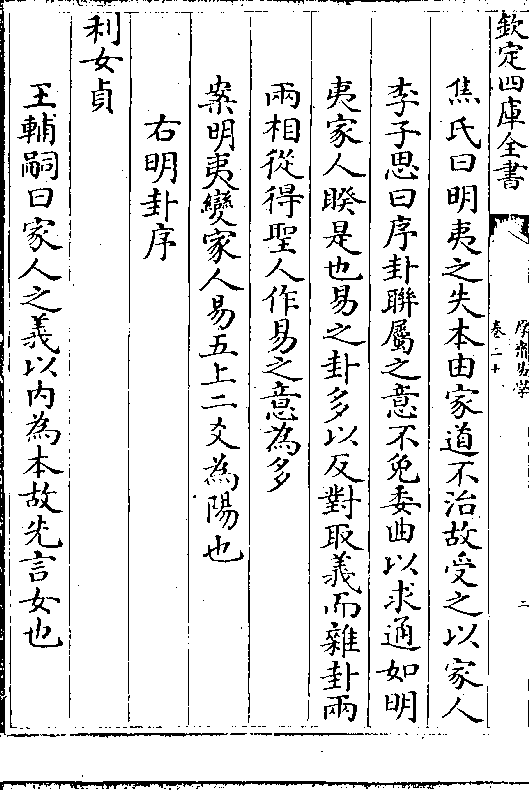 欽定四庫全書
厚齋易學
卷二十
二
焦氏曰明夷之失本由家道不治故受之以家人
李子思曰序卦聯屬之意不免委曲以求通如明
夷家人睽是也易之卦多以反對取義而雜卦兩
兩相從得聖人作易之意為多
案明夷變家人易五上二爻為陽也
右明卦序
利女貞
王輔嗣曰家人之義以内為本故先言女也